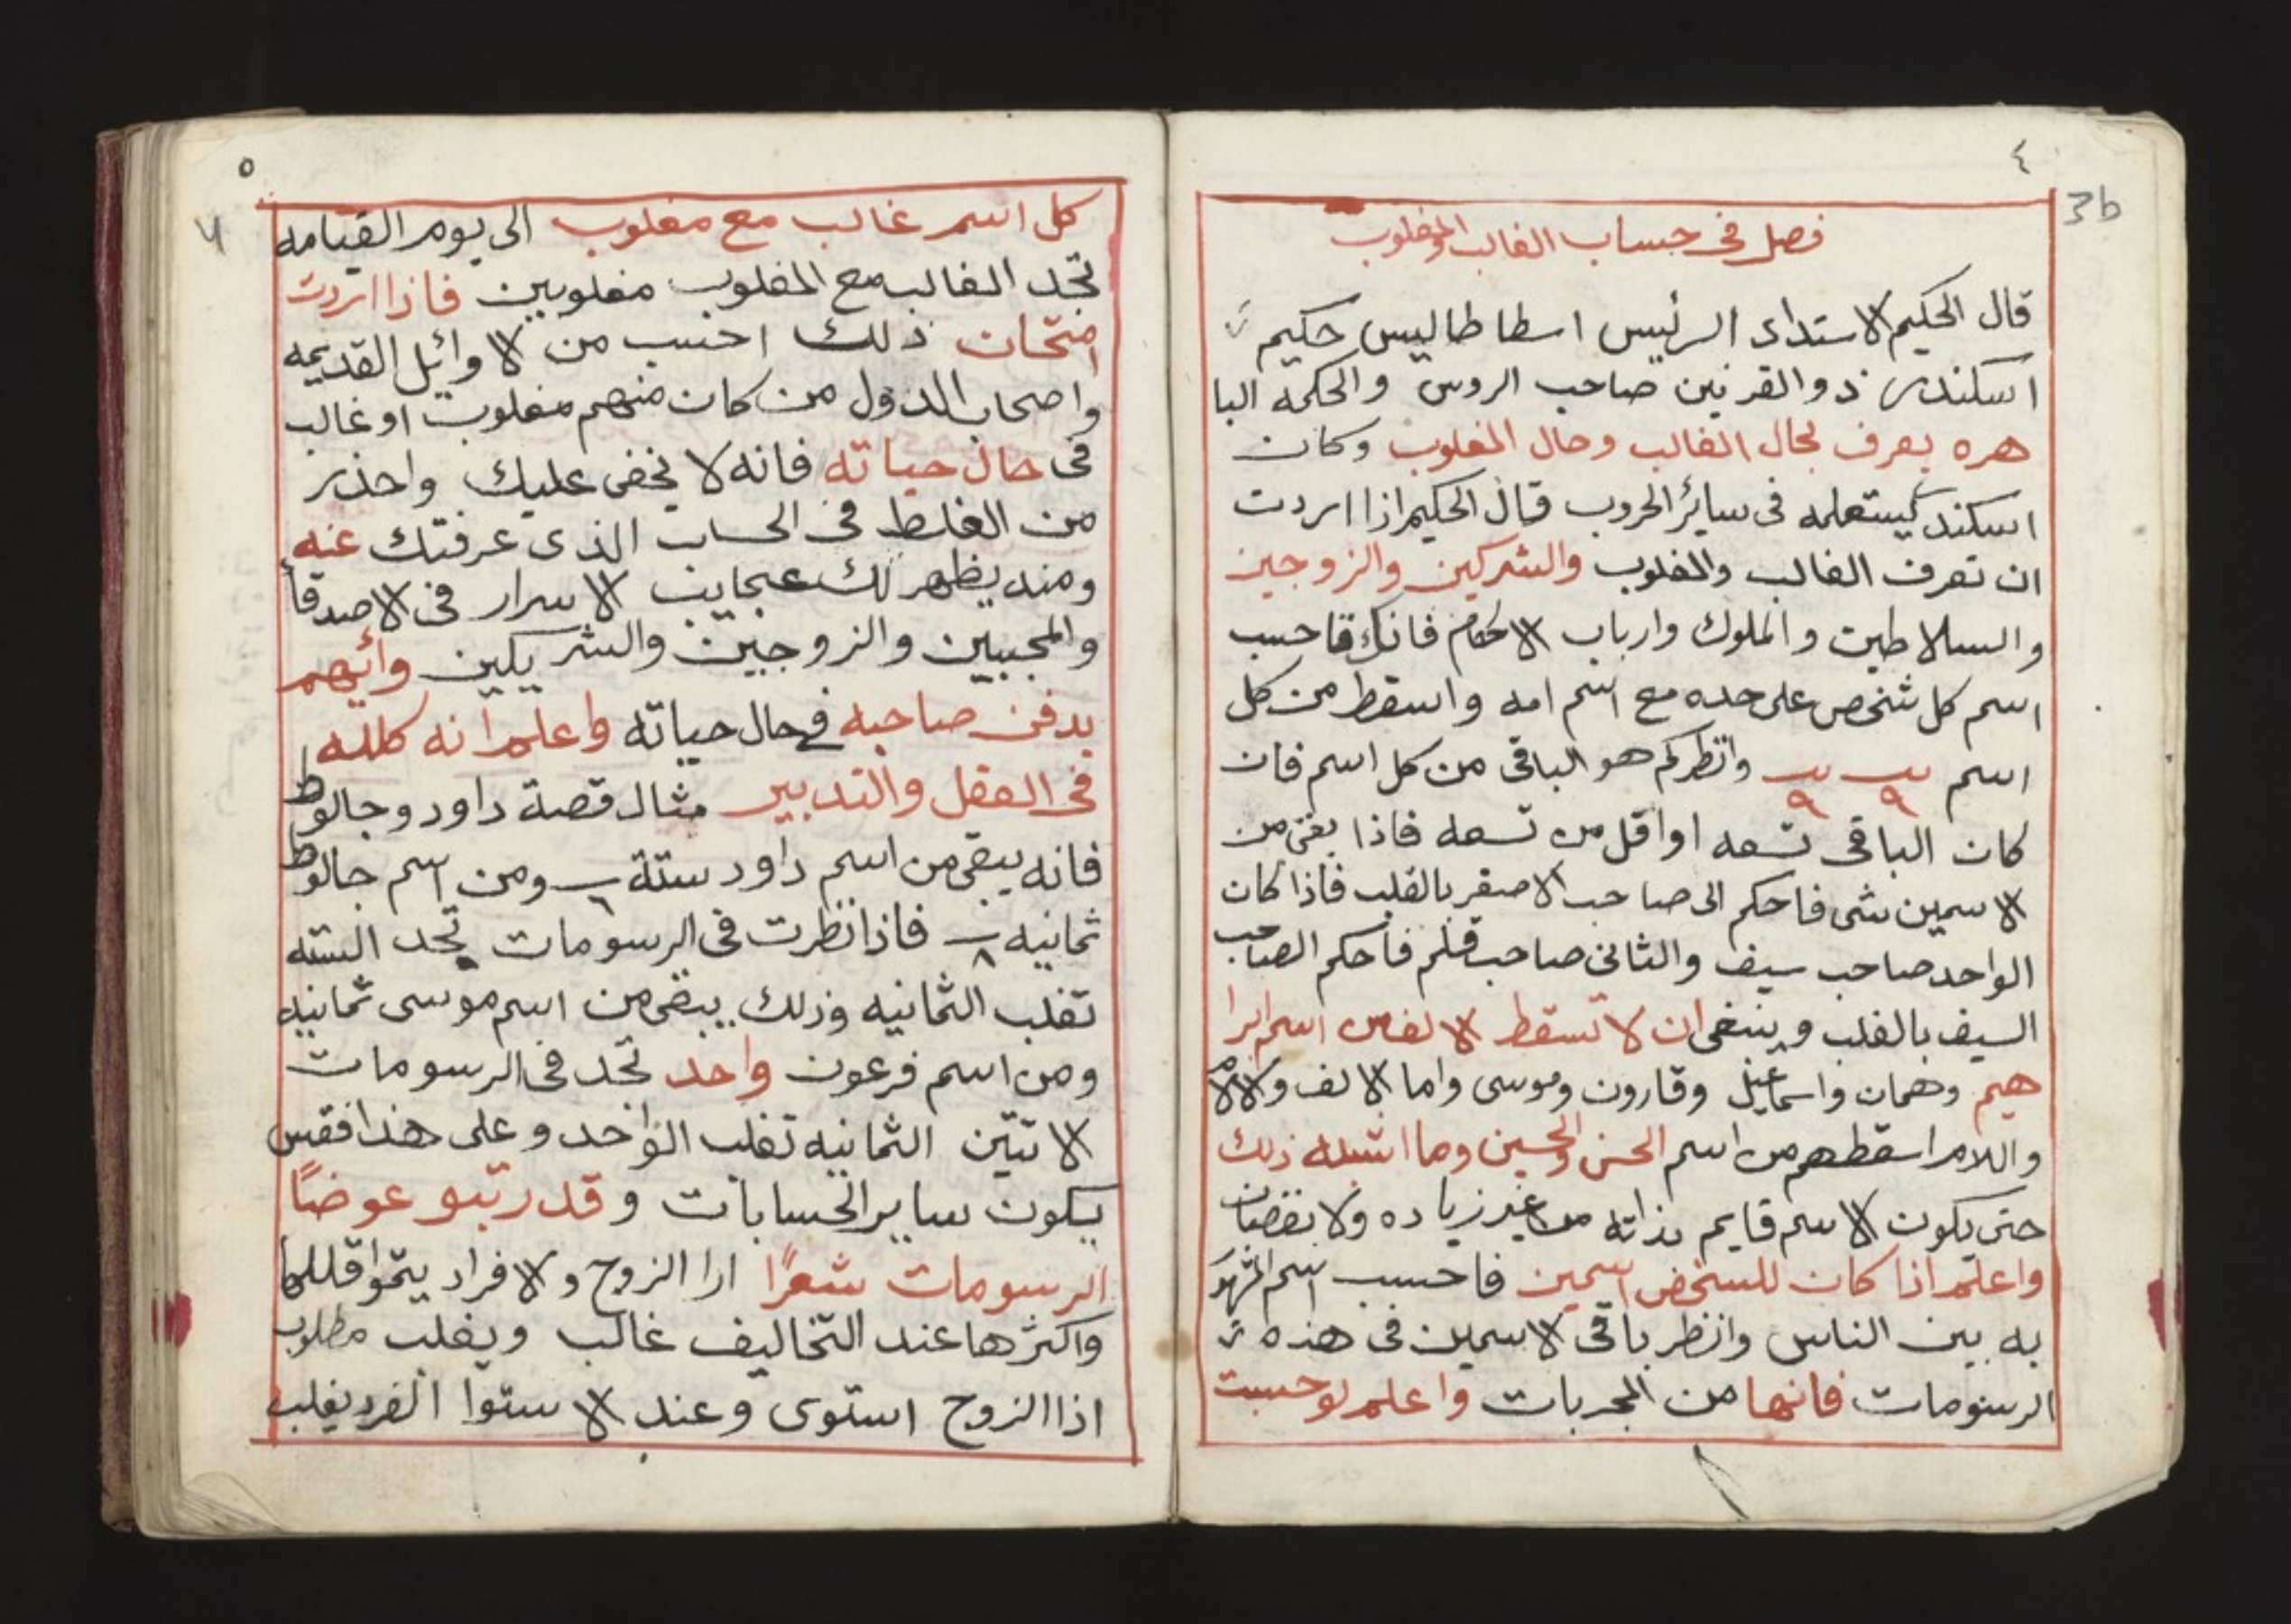 ٤
3b
فصل فى حساب الغالب والمغلوب
قال الحكيم الاستداد الرئيس اسطاطاليس حكيم
اسكندر ذو القرنين صاحب الروس والحكمه البا
هره يعرف بحال الغالب وحال المغلوب وكان
اسكندر يستعمله فى سائر الحروب قال الحكيم اذا اردت
ان تعرف الغالب والمغلوب والشركين والزوجين
والسلاطين والملوك وارباب الاحكام فانك فاحسب
اسم كل شخص على حده مع اسم امه واسقط من كل
اسم ٩ ٩ وانظر كم هو الباقى من كل اسم فان
كان الباقى تسعه او اقل من تسعه فاذا بقى من
الاسمين شى فاحكم الى صاحب الاصغر بالغلب فاذا كان
الواحد صاحب سيف والثانى صاحب قلم فاحكم الصاحب
السيف بالغلب وينبغى ان لا تسقط الالف من اسم ابرا
هيم وهمان واسماعيل وقارون وموسى واما الالف والام
واللام اسقطهم من اسم الحسن والحسين وما اشبه ذلك
حتى يكون الاسم قايم بذاته من غير زياده ولا نقصان
واعلم اذا كان للشخص اسمين فاحسب اسم المشهور
به بين الناس وانظر باقى الاسمين فى هذه
الرسومات فانها من المجربات واعلم لو حسبت
٥
4
كل اسم غالب مع مغلوب الى يوم القيامه
تجد الغالب مع المغلوب مغلوبين فاذا اردت
امتحان ذلك احسب من الاوائل القديمه
واصحاب الدول من كان منهم مغلوب او غالب
فى حال حياته فانه لا يخفى عليك واحذر
من الغلط فى الحساب الذى عرفتك عنه
ومنه يظهر لك عجايب الاسرار فى الاصدقا
والمحبيين والزوجين والشريكين وائهم
يدفن صاحبه فى حال حياته واعلم انه كلله
فى العقل والتدبير مثال قصة داود وجالوط
فانه يبقى من اسم داود ستة ٦ ومن اسم جالوط
ثمانيه ٨ فاذا نظرت فى الرسومات تجد السته
تغلب الثمانيه وذلك يبقى من اسم موسى ثمانيه
ومن اسم فرعون واحد تجد فى الرسومات
الاتين الثمانيه تغلب الواحد وعلى هذا فقس
يكون ساير الحسابات وقد رتبو عوضًا
الرسومات شعرًا ارا الزوج والافراد يتموا قللها
واكثرها عند التخاليف غالب ويغلب مطلوب
اذا الزوج استوى وعند الاستوا الفرد يغلب